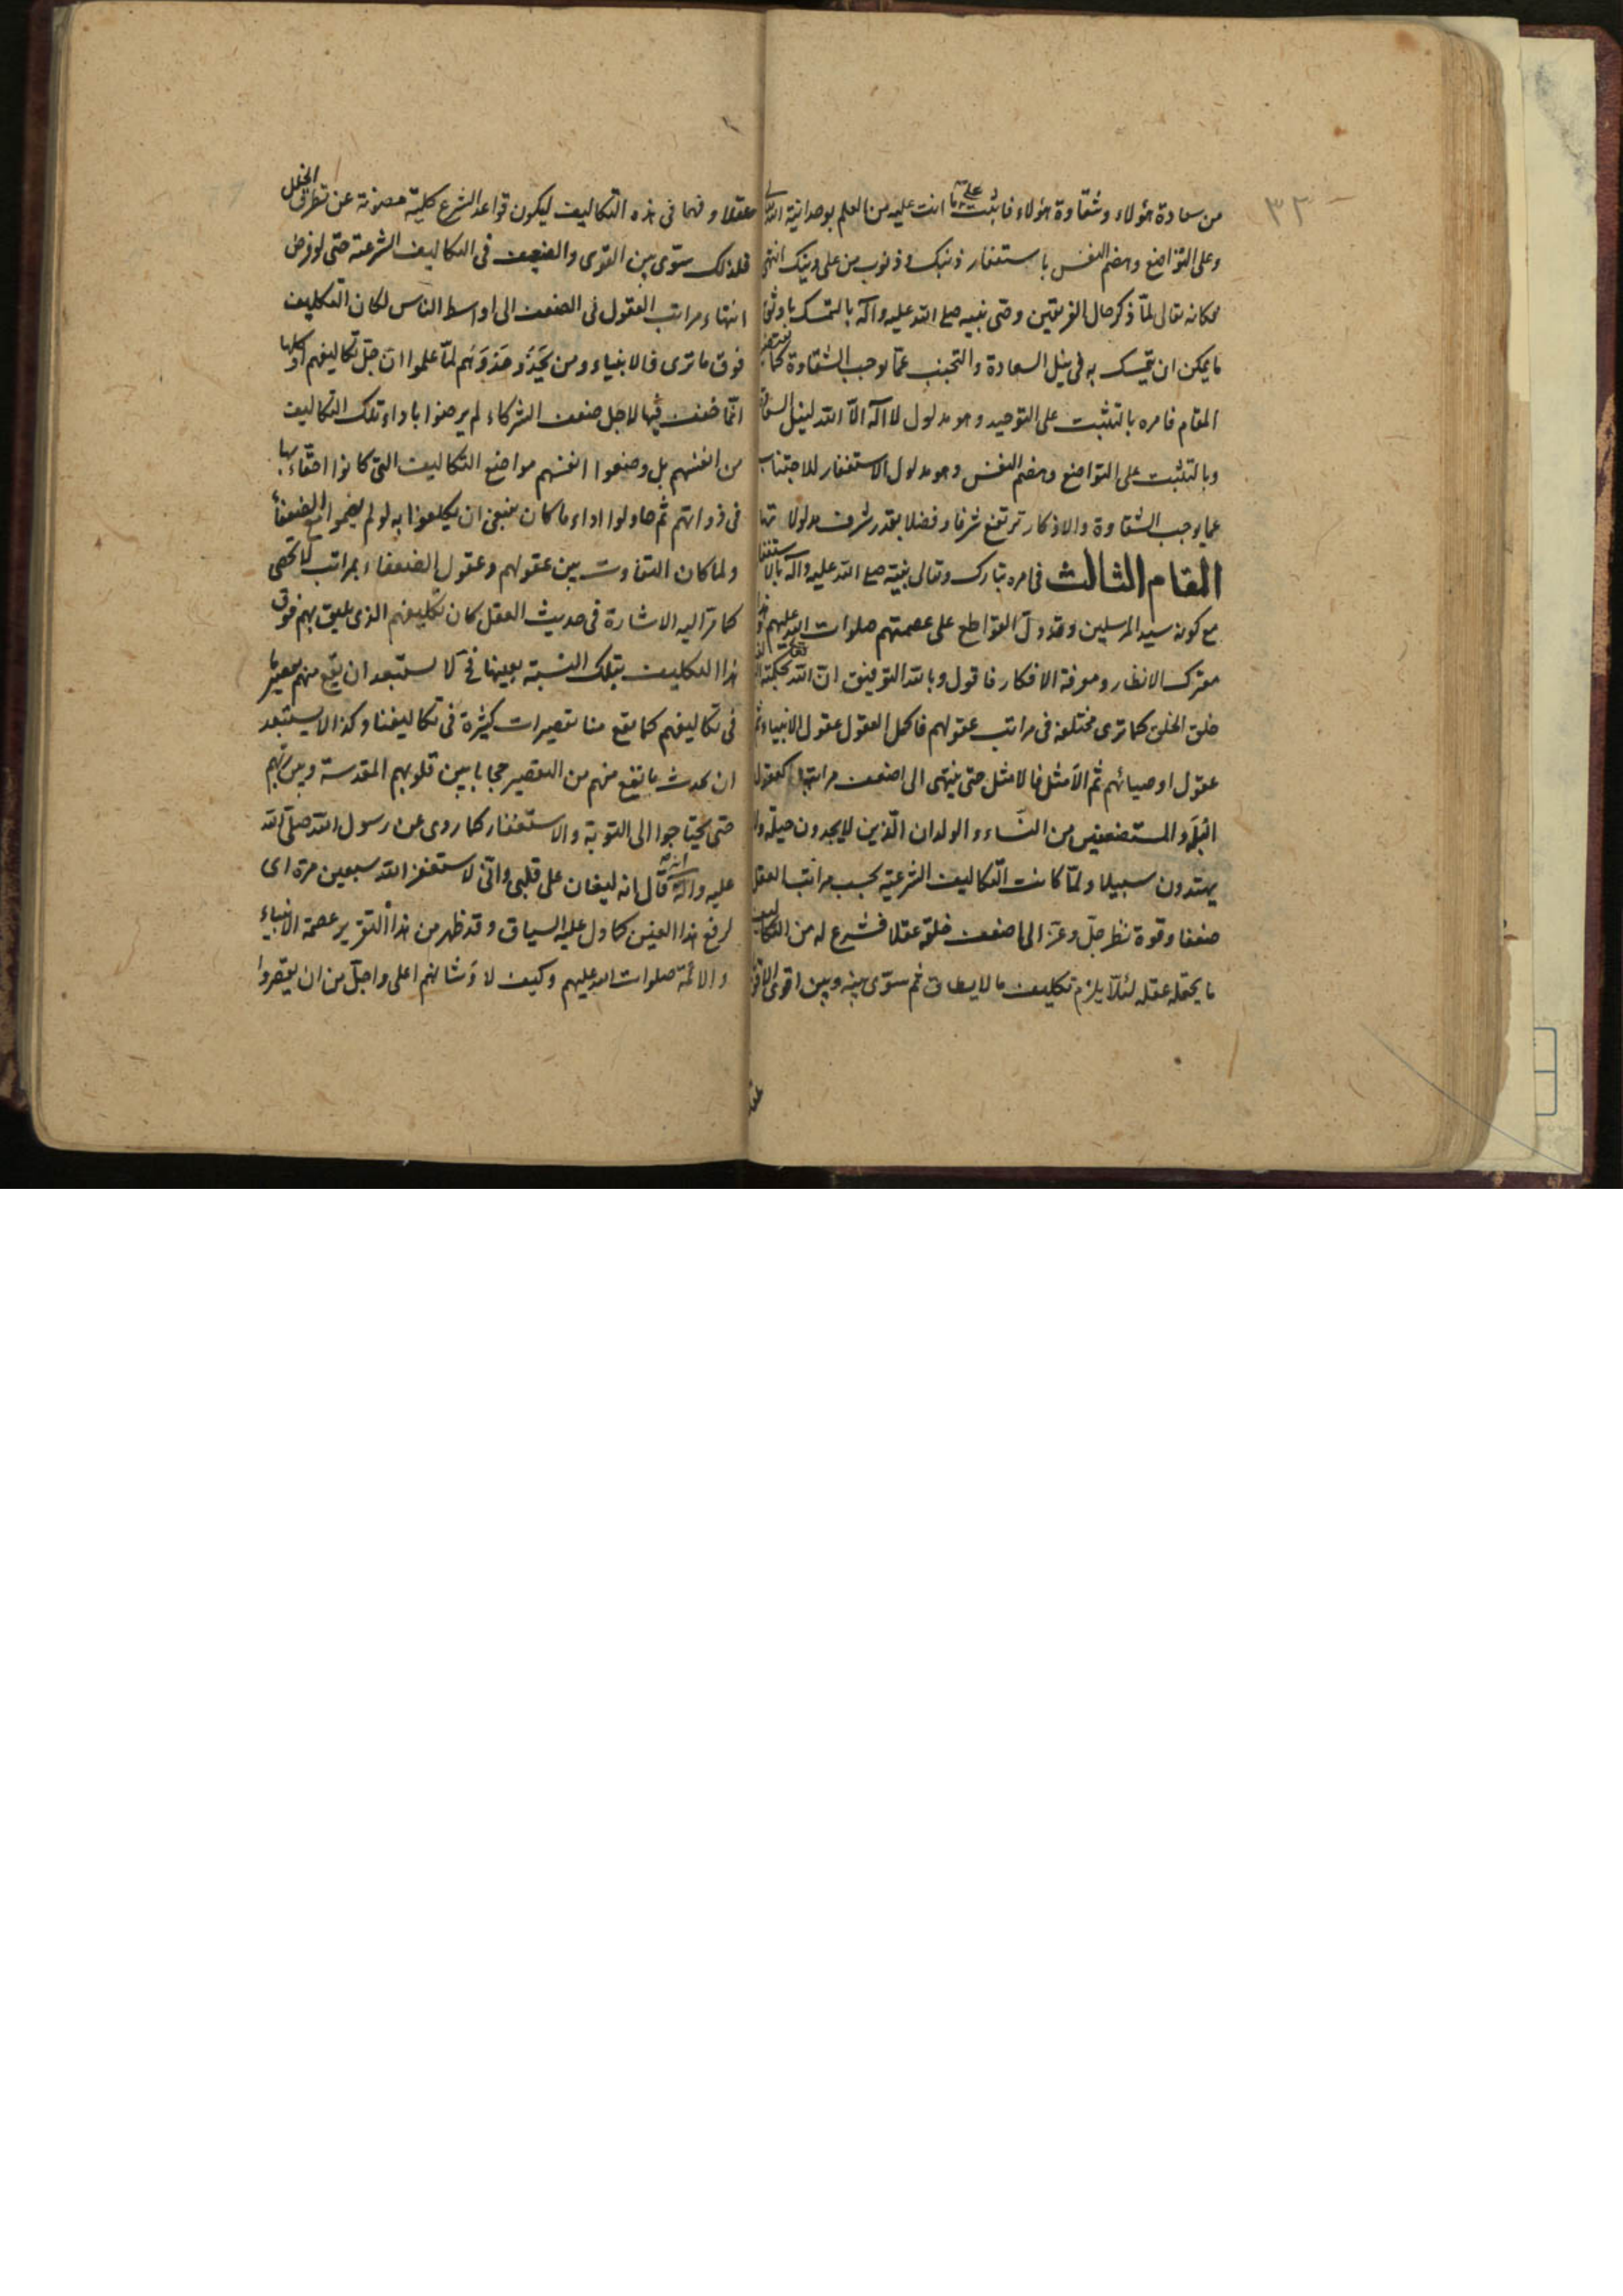 ٣٢
من سعادة هؤلاء وشقاوة هؤلاء فاثبت على ما انت عليه من العلم بوحدانية الله
وعلى التواضع وهضم النفس باستغفار ذنبك وذنوب من على دينك انتهى
فكانه تعالى لمّا ذكر حال الفريقين وصّى نبيه صلى الله عليه وآله بالتمسك باوثق
ما يمكن ان يتمسك به فى نيل السعادة والتجنب عمّا يوجب الشقاوة كما يقتضيه
المقام فامره بالتثبت على التوحيد وهو مدلول لا اله الّا الله لينل السعادة
وبالتثبت على التواضع وهضم النفس وهو مدلول الاستغفار للاجتناب
عما يوجب الشقاوة والاذكار ترتفع شرفا وفضلا بقدر شرف مدلولاتها
المقام الثالث فى امره تبارك وتعالى نبيّه صلى الله عليه وآله بالاستغفار
مع كونه سيد المرسلين وقد دلّ القواطع على عصمتهم صلوات الله عليهم وهذا
معترك الانظار ومورفة الافكار فاقول وبالله التوفيق انّ الله تعالى بحكمته
خلق الخلق كما ترى مختلفة فى مراتب عقولهم فاكمل العقول عقول الانبياء ثم
عقول اوصيائهم ثم الامثل فالامثل حتى ينتهى الى اضعف مراتبها كعقول
البله والمستضعفين من النساء والولدان الّذين لا يجدون حيلة ولا
يهتدون سبيلا ولمّا كانت التكاليف الشرعيّة بحسب مراتب العقل
ضعفا وقوة نظر جلّ وعزّ الى اضعف خلقه عقلا فشرع له من التكاليف
ما يحتمله عقله لئلّا يلزم تكليف ما لا يطاق ثم سوّى بينه وبين اقوى الاقوياء
عقلا وفهما فى هذه التكاليف ليكون قواعد الشرع كلية مصونة عن تطرق الخلل
فلذلك ستوى بين القوى والضعيف فى التكاليف الشرعية حتى لو فرض
انتهاء مراتب العقول فى الضعف الى اواسط الناس لكان التكليف
فوق ما ترى فالانبياء ومن يَحذُو حَذوَهُم لمّا علموا انّ جلّ تكاليفهم او كلها
انّما ضعف فيها لاجل ضعف الشركاء لم يرضوا باداء تلك التكاليف
من انفسهم بل وضعوا انفسهم مواضع التكاليف التى كانوا احقّاء بها
فى ذواتهم ثم حاولوا اداء ما كان ينبغى ان يكلفوا به لو لم يضموا مع الضعفاء
ولما كان التفاوت بين عقولهم وعقول الضعفاء بمراتب لا تحصى
كما مرّ اليه الاشارة فى حديث العقل كان تكليفهم الذى يليق بهم فوق
هذا التكليف بتلك النسبة بعينها فح لا يستبعد ان يقع منهم تقصير ما
فى تكاليفهم كما يقع منا تقصيرات كثيرة فى تكاليفنا وكذا لا يستبعد
ان يحدث ما يقع منهم من التقصير حجابا بين قلوبهم المقدسة وبين ربهم
حتى يحتاجوا الى التوبة والاستغفار كما روى عن رسول الله صلّى الله
عليه وآله انه قال انه ليغان على قلبى وانّى لاستغفر الله سبعين مرة اى
لرفع هذا الغين كما دل عليه السياق وقد ظهر من هذا التقرير عصمة الانبياء
والائمة صلوات الله عليهم وكيف لا وشانهم اعلى واجلّ من ان يقصروا